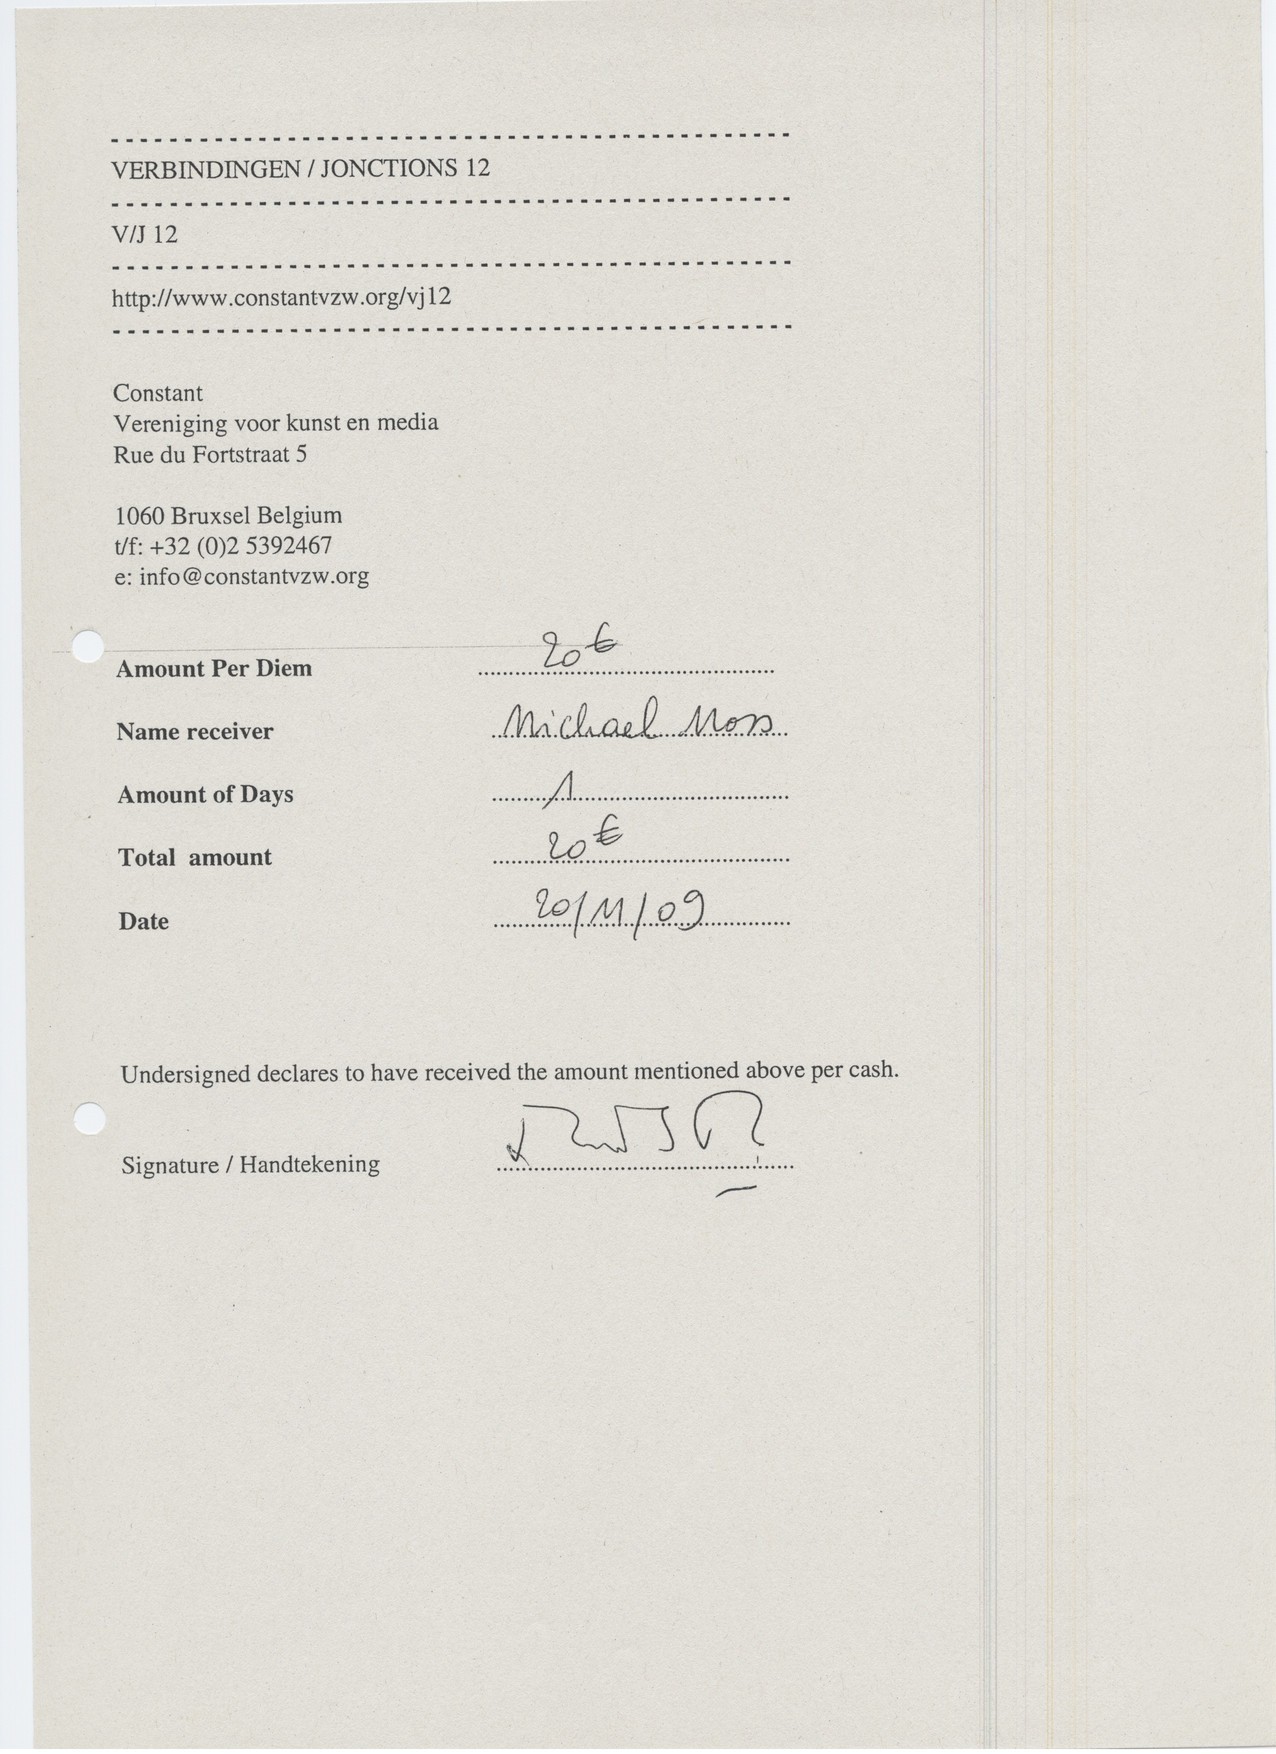 VERBINDINGEN / JONCTIONS 12
V/J 12
http://www.constantvzw.org/vj12
Constant
Vereniging voor kunst en media
Rue du Fortstraat 5
1060 Bruxsel Belgium
t/f: +32 (0)2 5392467
e: info@constantvzw.org
Amount Per Diem 20€
Name receiver Michael Moss
Amount of Days 1
Total amount 20€
Date 20/11/09
Undersigned declares to have received the amount mentioned above per cash.
Signature / Handtekening